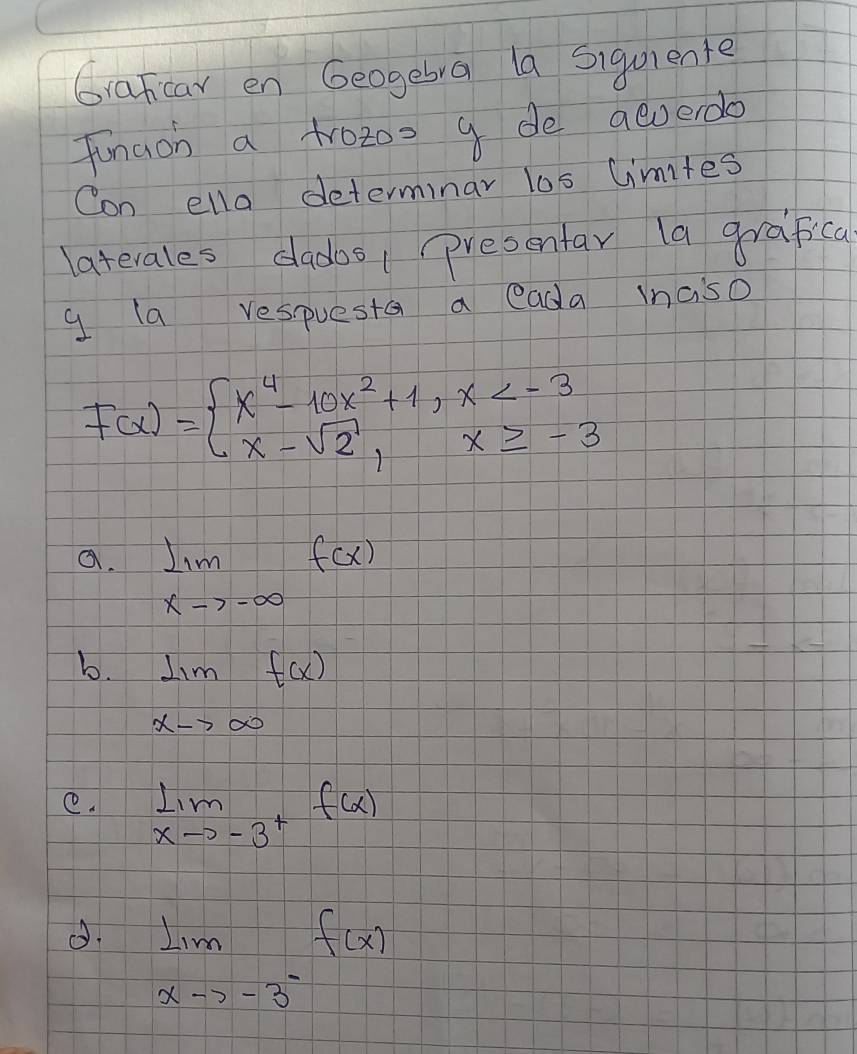 Graficar en Geogebra la siguiente
función a trozos y de acuerdo
Con ella determinar los límites
laterales dados, presentar la gráfica
y la respuesta a cada inciso
F(x) = { x⁴ - 10x² + 1, x < -3
x - √2, x ≥ -3
a. Lim f(x)
x -> -∞
b. Lim f(x)
x -> ∞
c. Lim f(x)
x -> -3⁺
d. Lim f(x)
x -> -3⁻